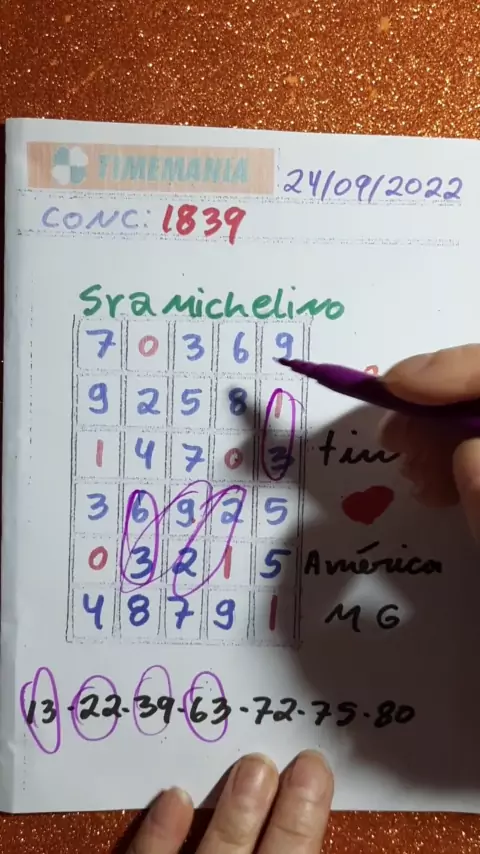 TIMEMANIA 24/09/2022
CONC: 1839
SraMichelino
7 0 3 6 9
9 2 5 8 1
1 4 7 0 3
3 6 9 2 5
0 3 2 1 5 América
4 8 7 9 1 MG
13-22-39-63-72-75-80